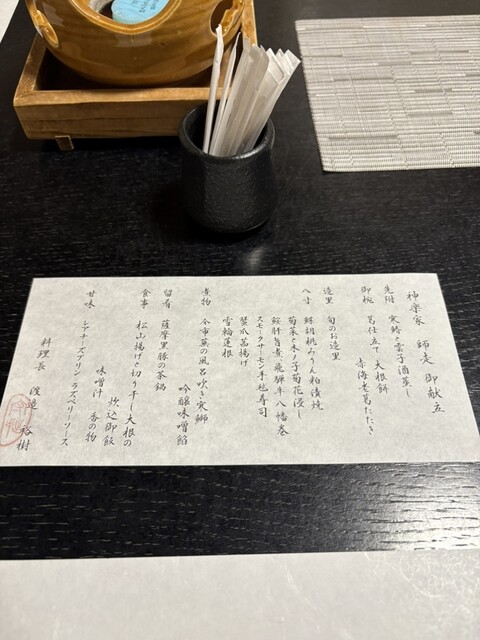 神楽家 師走 御献立
先附 寒鰆と雲子酒蒸し
御椀 葛仕立て 大根餅
赤海老葛たたき
造里 旬のお造里
八寸 鮭胡桃みりん粕漬焼
菊菜と木ノ子菊花浸し
鮟肝旨煮 飛騨牛八幡巻
スモークサーモン手毬寿司
蟹爪菖揚げ
雪輪蓮根
煮物 今市蕪の風呂吹き 寒鰤
吟醸味噌餡
留肴 薩摩黒豚の茶鍋
食事 松山揚げと切り干し大根の
炊込御飯
味噌汁 香の物
甘味 レアチーズプリン ラズベリーソース
料理長 渡邉 裕樹